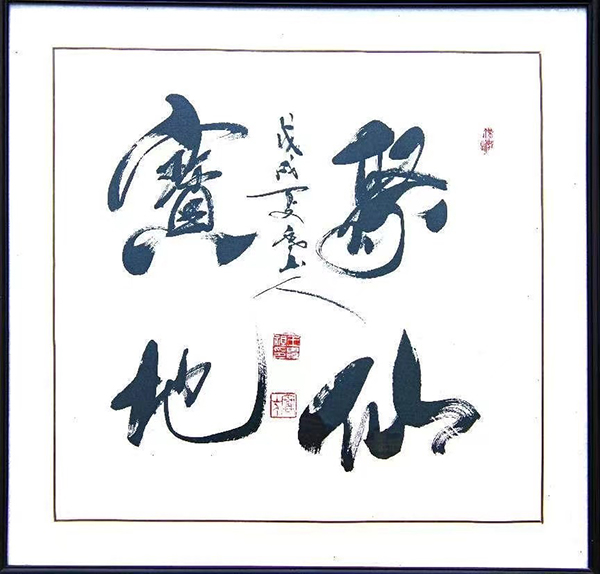 聚仙
寳地
戊戌夏
山人